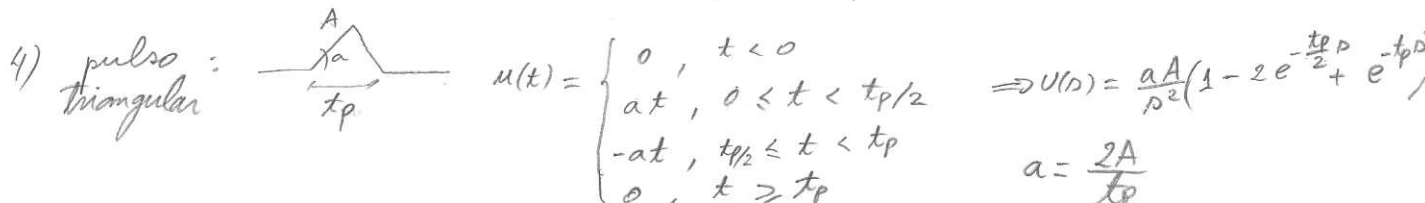 4) pulso triangular : A a tp u(t) = { 0 , t < 0
at , 0 ≤ t < tp/2
-at , tp/2 ≤ t < tp
0 , t ≥ tp
⇒ U(s) = aA/s² (1 - 2 e^(-tp/2 s) + e^(-tp s))
a = 2A/tp